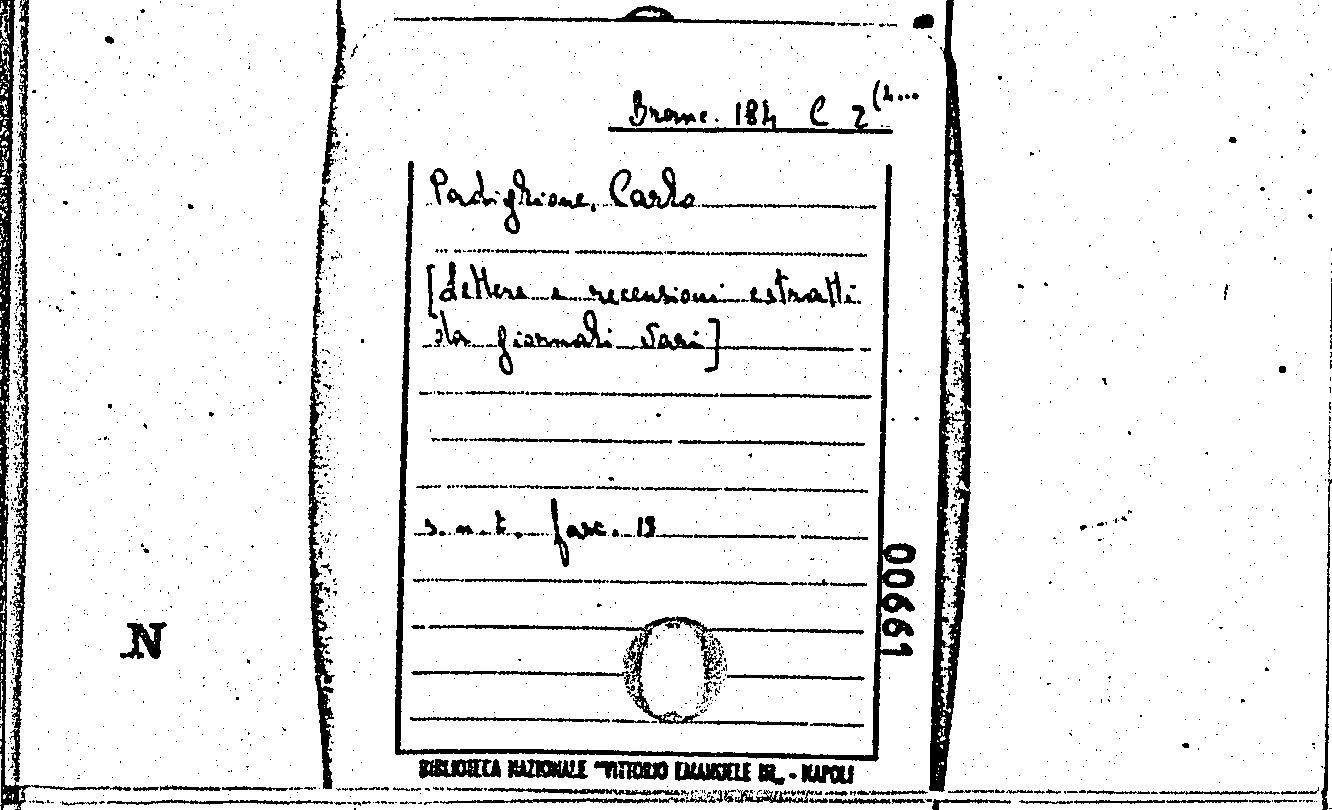 Branc. 184 C 2 (4...
Padiglione, Carlo
[Lettere e recensioni estratti
da giornali vari]
s. n. t. fasc. 19
00661
N
BIBLIOTECA NAZIONALE "VITTORIO EMANUELE III„ - NAPOLI